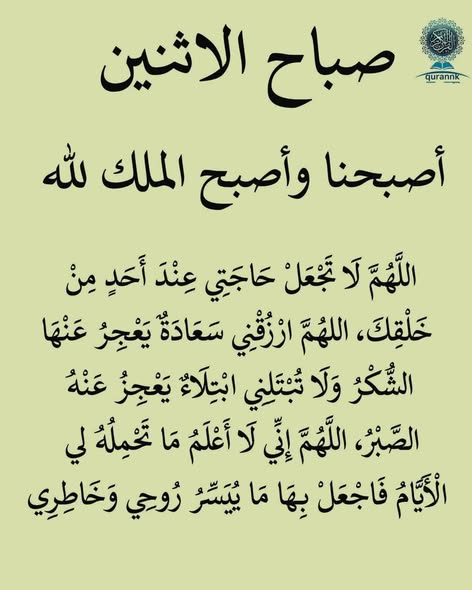 صباح الاثنين
qurannk
أصبحنا وأصبح الملك لله
اللَّهُمَّ لَا تَجْعَلْ حَاجَتِي عِنْدَ أَحَدٍ مِنْ
خَلْقِكَ، اللهُمَّ ارْزُقْنِي سَعَادَةٌ يَعْجِرُ عَنْهَا
الشُّكْرُ وَلَا تُبْتَلِنِي ابْتِلَاءٌ يَعْجِزُ عَنْهُ
الصَّبْرُ، اللَّهُمَّ إِنِّي لَا أَعْلَمُ مَا تَحْمِلُهُ لي
الْأَيَّامُ فَاجْعَلْ بِهَا مَا يُيَسِّرُ رُوحِي وَخَاطِرِي